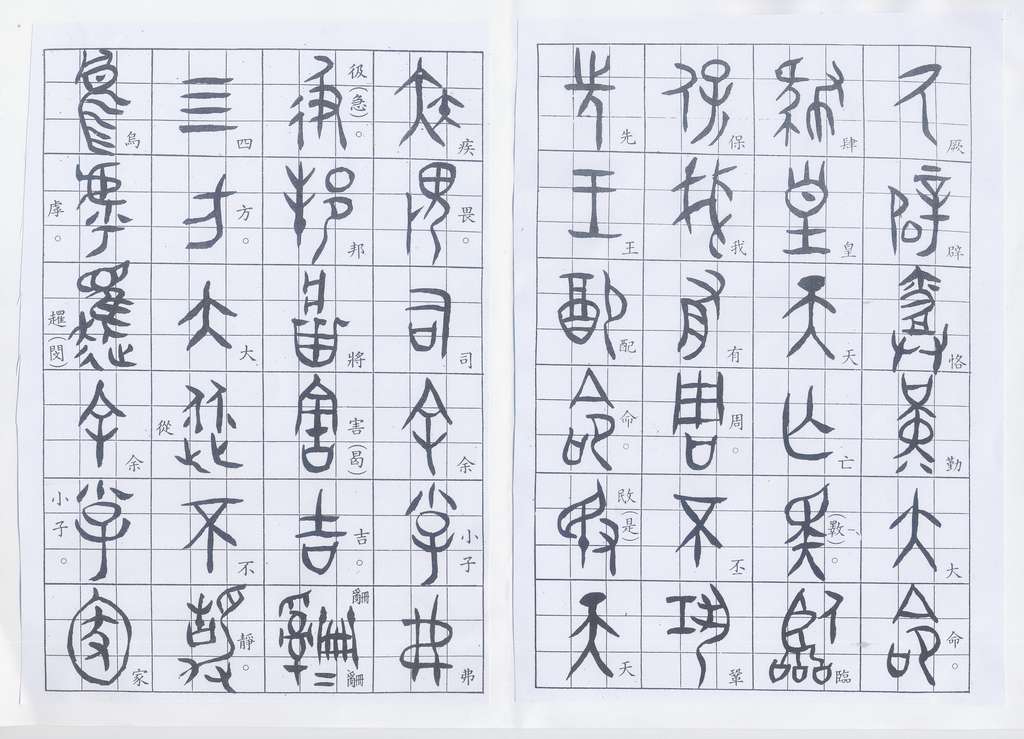 厥辟恪勤大命。
肆皇天亡(斁)。臨
保我有周。丕鞏
先王配命。敃(是)天
疾畏。司余小子弗
彶(急)。邦將害(曷)吉。
四方。大從不靜。
烏虖。趯(閔)余小子。家